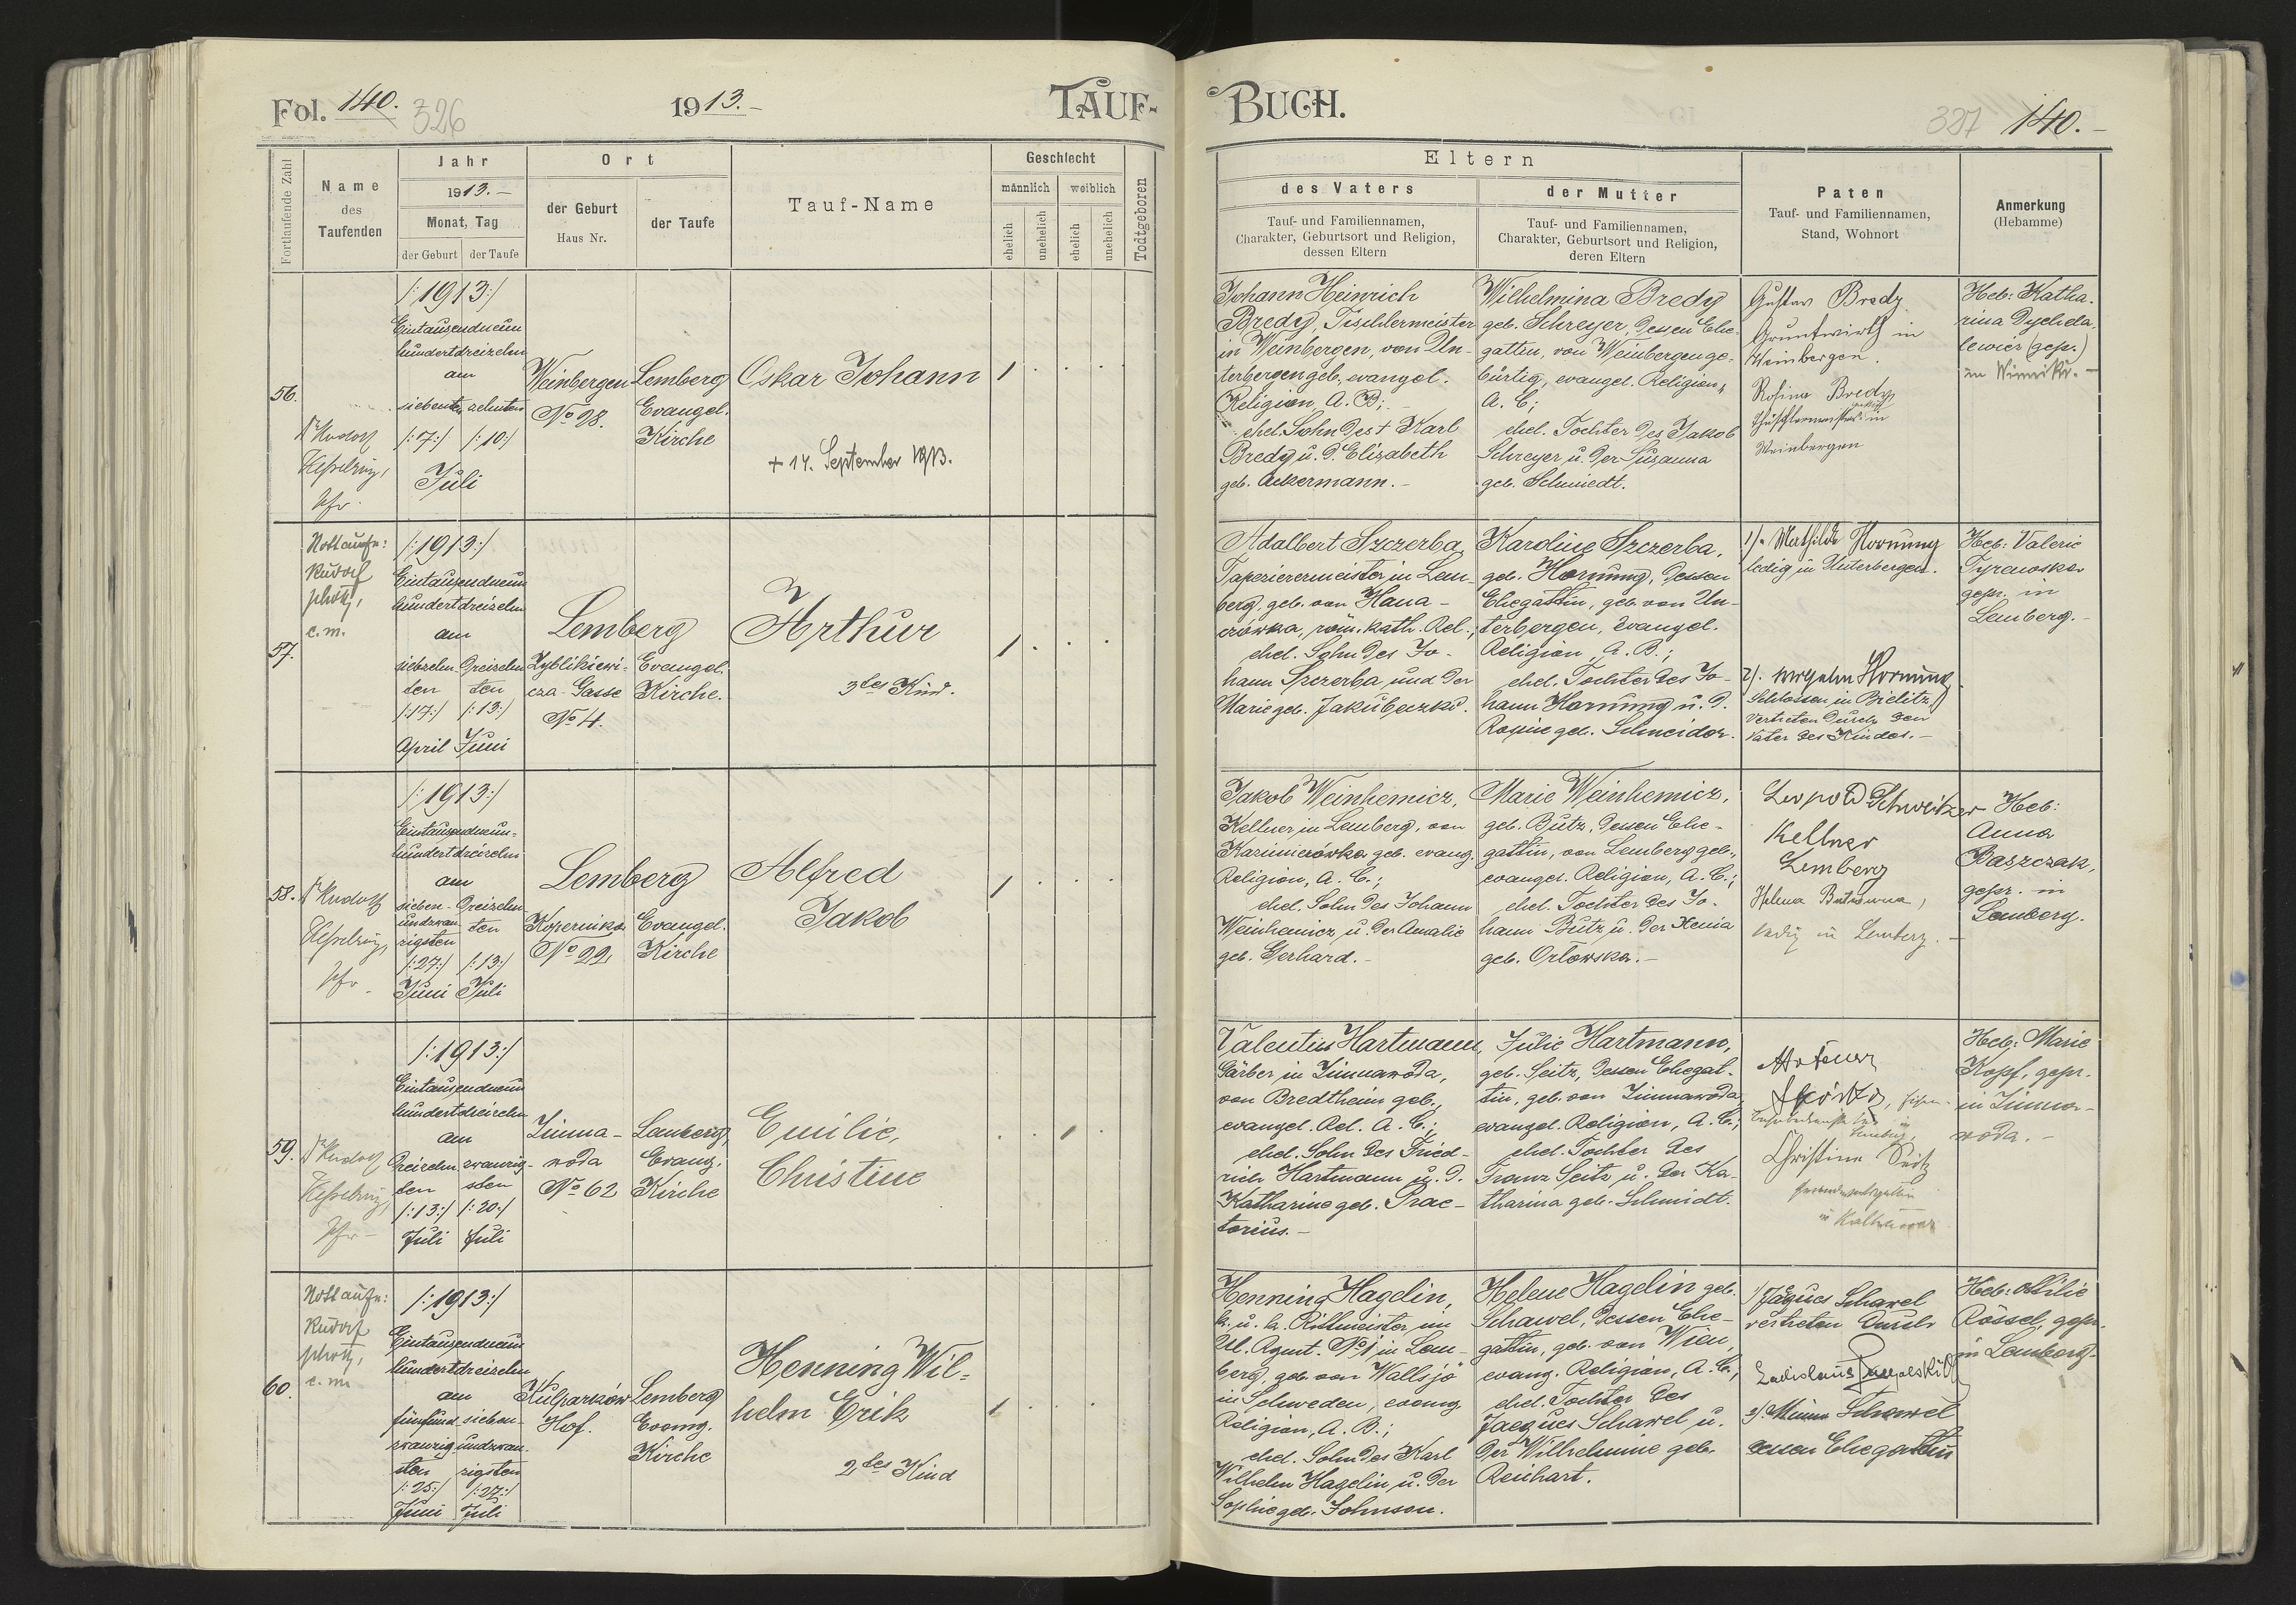 Fol. 140. 326
1913.-
TAUF-
BUCH.
327 140.-
Fortlaufende Zahl
Name
des
Taufenden
Jahr
1913.-
Monat, Tag
der Geburt der Taufe
Ort
der Geburt
Haus Nr.
der Taufe
Tauf-Name
Geschlecht
männlich weiblich
ehelich
unehelich
ehelich
unehelich
Todtgeboren
Eltern
des Vaters
Tauf- und Familiennamen,
Charakter, Geburtsort und Religion,
dessen Eltern
der Mutter
Tauf- und Familiennamen,
Charakter, Geburtsort und Religion,
deren Eltern
Paten
Tauf- und Familiennamen,
Stand, Wohnort
Anmerkung
(Hebamme)
56.
Dr Rudolf
Kesselring,
Pfr.
/:1913:/
Eintausendneun
hundertdreizehn
am
siebenten zehnten
/:7:/ /:10:/
Juli
Weinbergen
No 28.
Lemberg
Evangel.
Kirche
Oskar Johann
+ 14. September 1913.
1
Johann Heinrich
Bredy, Tischlermeister
in Weinbergen, von Un-
terbergen geb., evangel.
Religion, A. B.;
ehel. Sohn des + Karl
Bredy u. d. Elizabeth
geb. Ackermann.-
Wilhelmina Bredy
geb. Schreyer, dessen Ehe-
gattin, von Weinbergen ge-
bürtig, evangel. Religion,
A. C.;
ehel. Tochter des Jakob
Schreyer u. der Susanna
geb. Schmiedt.
Gustav Bredy
Grundwirth in
Weinbergen.
Rosina Bredy
in
Weinbergen
Heb: Katha-
rina Dychda-
lewicz (gepr.)
in Winniki.-
57.
Nottaufe:
Rudolf
c.m.
/:1913:/
Eintausendneun
hundertdreizehn
am
siebzehn- dreizehn
ten ten
/:17:/ /:13:/
April Juni
Lemberg
Zyblikiewi-
cza-Gasse
No 4.
Evangel.
Kirche.
Arthur
3tes Kind.
1
Adalbert Szczerba,
Tapezierermeister in Lem-
berg, geb. von Hana-
czówka, röm. kath. Rel.;
ehel. Sohn des Jo-
hann Szczerba und der
Marie geb. Jakubeczko.
Karoline Szczerba,
geb. Hornung, dessen
Ehegattin, geb. von Un-
terbergen, evangel.
Religion, A. B.;
ehel. Tochter des Jo-
hann Hornung u. d.
Rosine geb. Schneider.
1). Mathilde Hornung
ledig in Unterbergen.
2). Hornung
Schlosser in Bielitz
vertreten durch den
Vater des Kindes.-
Heb: Valerie
gepr. in
Lemberg.-
58.
Dr Rudolf
Kesselring,
Pfr.
/:1913:/
Eintausendneun-
hundertdreizehn
am
sieben- dreizehn
undzwan- ten
zigsten
/:27:/ /:13:/
Juni Juli
Lemberg
Kopernika
No 22.
Evangel.
Kirche
Alfred
Jakob
1
Jakob Weinhemicz,
Kellner in Lemberg, von
Kazimierówka geb. evang.
Religion, A. C.;
ehel. Sohn des Johann
Weinhemicz u. der Amalie
geb. Gerhard.-
Marie Weinhemicz,
geb. Butz, dessen Ehe-
gattin, von Lemberg geb.,
evangel. Religion, A. C.;
ehel. Tochter des Jo-
hann Butz u. der Xenia
geb. Orłowska.-
Leopold Schweitzer
Kellner
Lemberg
Helena
ledig in Lemberg.
Heb:
Anna
Baszczak,
gepr. in
Lemberg.
59.
Dr Rudolf
Kesselring,
Pfr
/:1913:/
Eintausendneun
hundertdreizehn
am
dreizehn- zwanzig-
ten sten
/:13:/ /:20:/
Juli Juli
Zimna-
woda
No 62
Lemberg,
Evang.
Kirche
Emilie,
Christine
1
Valentin Hartmann,
Gärber in Zimnawoda,
von Bredtheim geb.,
evangel. Rel. A. C.;
ehel. Sohn des Fried-
rich Hartmann u. d.
Katharine geb. Prae-
torius.-
Julie Hartmann,
geb. Seitz, dessen Ehegat-
tin, geb. von Zimnawoda,
evangel. Religion, A. C.;
ehel. Tochter des
Franz Seitz u. der Ka-
tharina geb. Schmidt.
Christine Seitz
in
Heb: Marie
Kopf, gepr.
in Zimna-
woda.-
60.
Nottaufe:
Rudolf
c.m.
/:1913:/
Eintausendneun
hundertdreizehn
am
fünfund- sieben-
zwanzig- undzwan-
sten zigsten
/:25:/ /:27:/
Juni Juli
Kulparków
Hof.
Lemberg
Evang.
Kirche
Henning Wil-
helm Erik
2tes Kind
1
Henning Hagelin,
k. u. k. Rittmeister im
Ul. Rgmt. No 1 in Lem-
berg, geb. von Wallsjö
in Schweden, evang.
Religion, A. B.;
ehel. Sohn des Karl
Wilhelm Hagelin u. der
Sophie geb. Johnson.
Helene Hagelin geb.
Schawel, dessen Ehe-
gattin, geb. von Wien,
evang. Religion, A. C.;
ehel. Tochter des
Jacques Schawel u.
der Wilhelmine geb.
Reichart.
1) Jaques Schawel
vertreten durch
Ladislaus
2). Minna Schawel
dessen Ehegattin
Heb: Ottilie
Rössel, gepr.
in Lemberg.